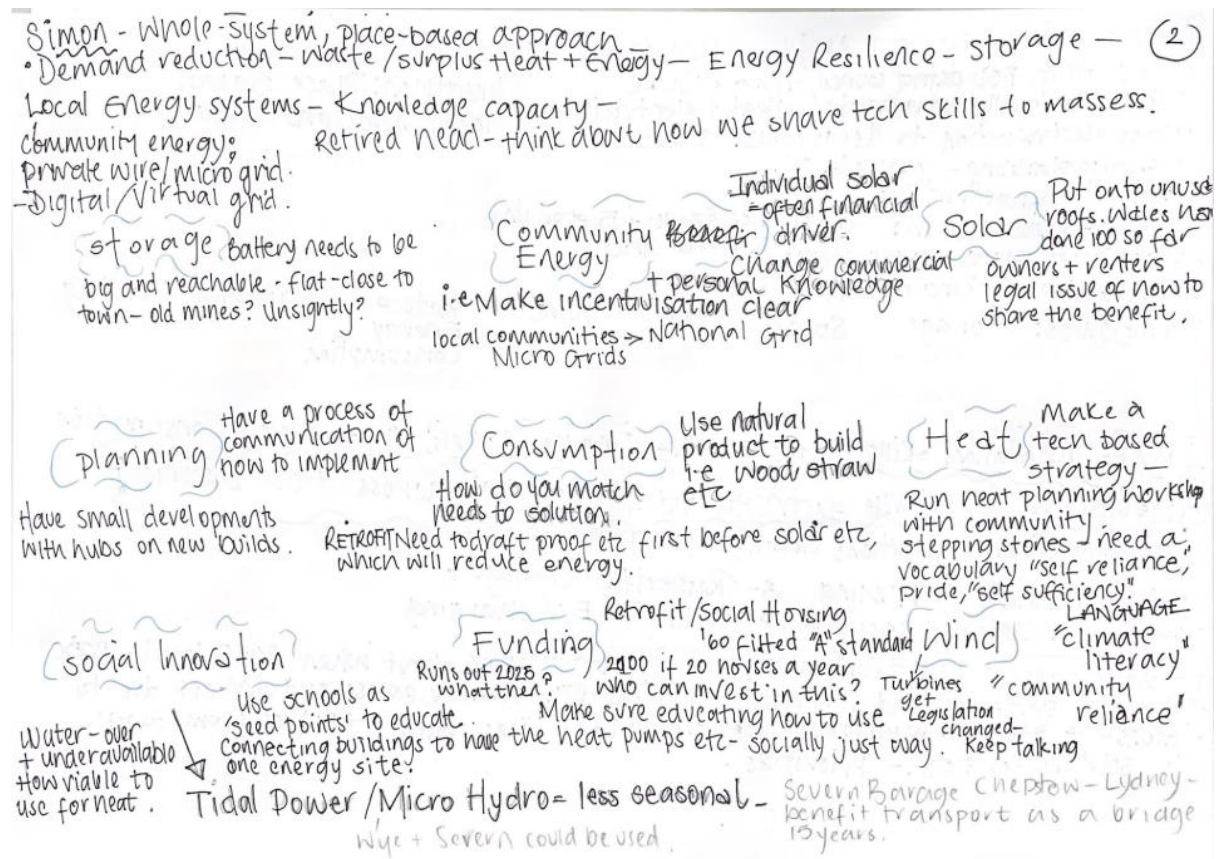 Simon - Whole-system, place-based approach
②
• Demand reduction - Waste/surplus Heat + Energy - Energy Resilience - storage -
Local Energy systems - Knowledge capacity -
Retired head - think about how we share tech skills to massess.
community energy;
private wire/micro grid.
- Digital/Virtual grid.
storage Battery needs to be
big and reachable - flat-close to
town - old mines? Unsightly?
Individual solar
= often financial
driver.
Community
Energy
Change commercial
+ personal knowledge
i.e Make incentivisation clear
local communities > National Grid
Micro Grids
Solar
Put onto unused
roofs. Wales has
done 100 so far
owners + renters
legal issue of how to
share the benefit.
planning
Have a process of
communication of
how to implement
Have small developments
with hubs on new builds.
Consumption
Use natural
product to build
i.e wood straw
etc
How do you match
needs to solution.
RETROFIT Need to draft proof etc first before solar etc,
which will reduce energy.
Heat
Make a
tech based
strategy -
Run heat planning workshop
with community -
stepping stones - need a
vocabulary "self reliance,
pride, "self sufficiency".
LANGUAGE
"climate
literacy"
"community
reliance"
social Innovation
use schools as
'seed points' to educate.
Connecting buildings to have the heat pumps etc - socially just way.
one energy site?
Funding
Runs out 2025
what then?
Retrofit/Social Housing
'60 fitted "A" standard
2100 if 20 houses a year
who can invest in this?
Make sure educating how to use
Wind
Turbines
get
Legislation
changed -
Keep talking
Water - over
+ under available
How viable to
use for heat.
Tidal Power/Micro Hydro = less seasonal -
Wye + Severn could be used.
Severn Barage Chepstow - Lydney -
benefit transport as a bridge
15 years.